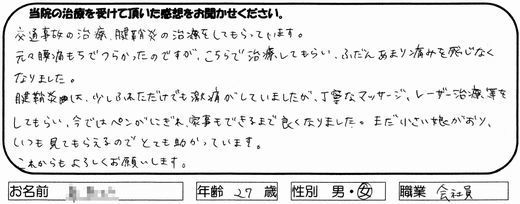 当院の治療を受けて頂いた感想をお聞かせください。
交通事故の治療、腱鞘炎の治療をしてもらっています。
元々腰痛もちでつらかったのですが、こちらで治療してもらい、ふだんあまり痛みを感じなく
なりました。
腱鞘炎は、少しふれただけでも激痛がしていましたが、丁寧なマッサージ、レーザー治療等を
してもらい、今ではペンがにぎれ、家事もできるまで良くなりました。まだ小さい娘がおり、
いつも見てもらえるのでとても助かっています。
これからもよろしくお願いします。
お名前 年齢 27 歳 性別 男・女 職業 会社員